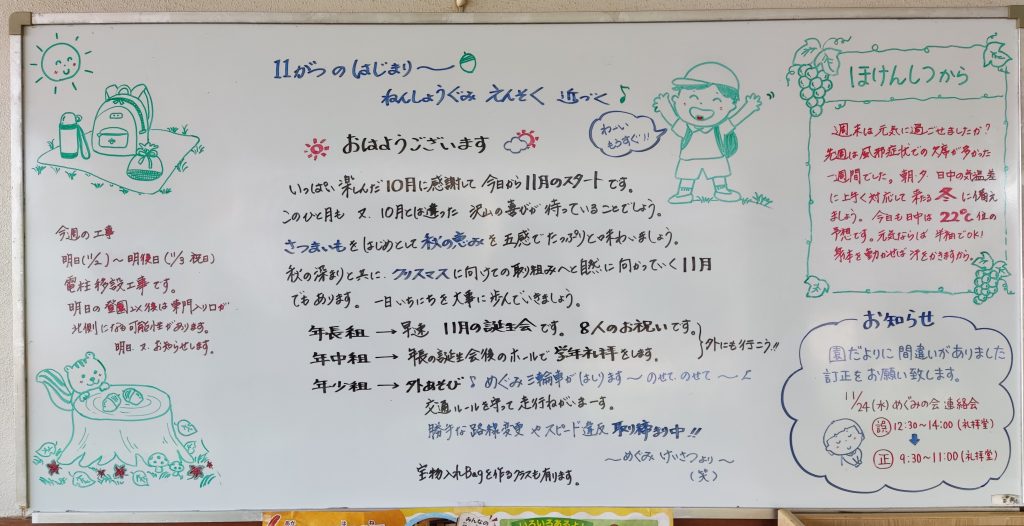 11がつのはじまり〜
ねんしょうぐみ えんそく 近づく♪
おはようございます
わーい もうすぐ!!
いっぱい楽しんだ10月に感謝して今日から11月のスタートです。
このひと月も又、10月とは違った沢山の喜びが待っていることでしょう。
さつまいもをはじめとして秋の恵みを五感でたっぷりと味わいましょう。
秋の深まりと共に、クリスマスに向けての取り組みへと自然に向かっていく11月
でもあります。一日いちにちを大事に歩んでいきましょう。
年長組→早速 11月の誕生会です。8人のお祝いです。
年中組→年長の誕生会後のホールで学年礼拝をします。
外にも行こう!!
年少組→外あそび♪めぐみ三輪車がはしります〜のせて、のせて〜♪
交通ルールを守って走行ねがいまーす。
勝手な路線変更やスピード違反取り締まり中!!
〜めぐみけいさつより〜
(笑)
宝物入れBagを作るクラスも有ります。
今週の工事
明日(11/2)〜明後日(11/3 祝日)
電柱移設工事です。
明日の登園以後は東門入り口が
北側になる可能性があります。
明日、又、お知らせします。
ほけんしつから
週末は元気に過ごせましたか?
先週は風邪症状での欠席が多かった
一週間でした。朝・夕、日中の気温差
に上手く対応して来たる冬に備え
ましょう。今日も日中は22℃位の
予想です。元気ならば半袖でOK!
身体を動かせば汗をかきますから。
お知らせ
園だよりに間違いがありました
訂正をお願い致します。
11/24(水)めぐみの会 連絡会
誤 12:30〜14:00(礼拝堂)
正 9:30〜11:00(礼拝堂)